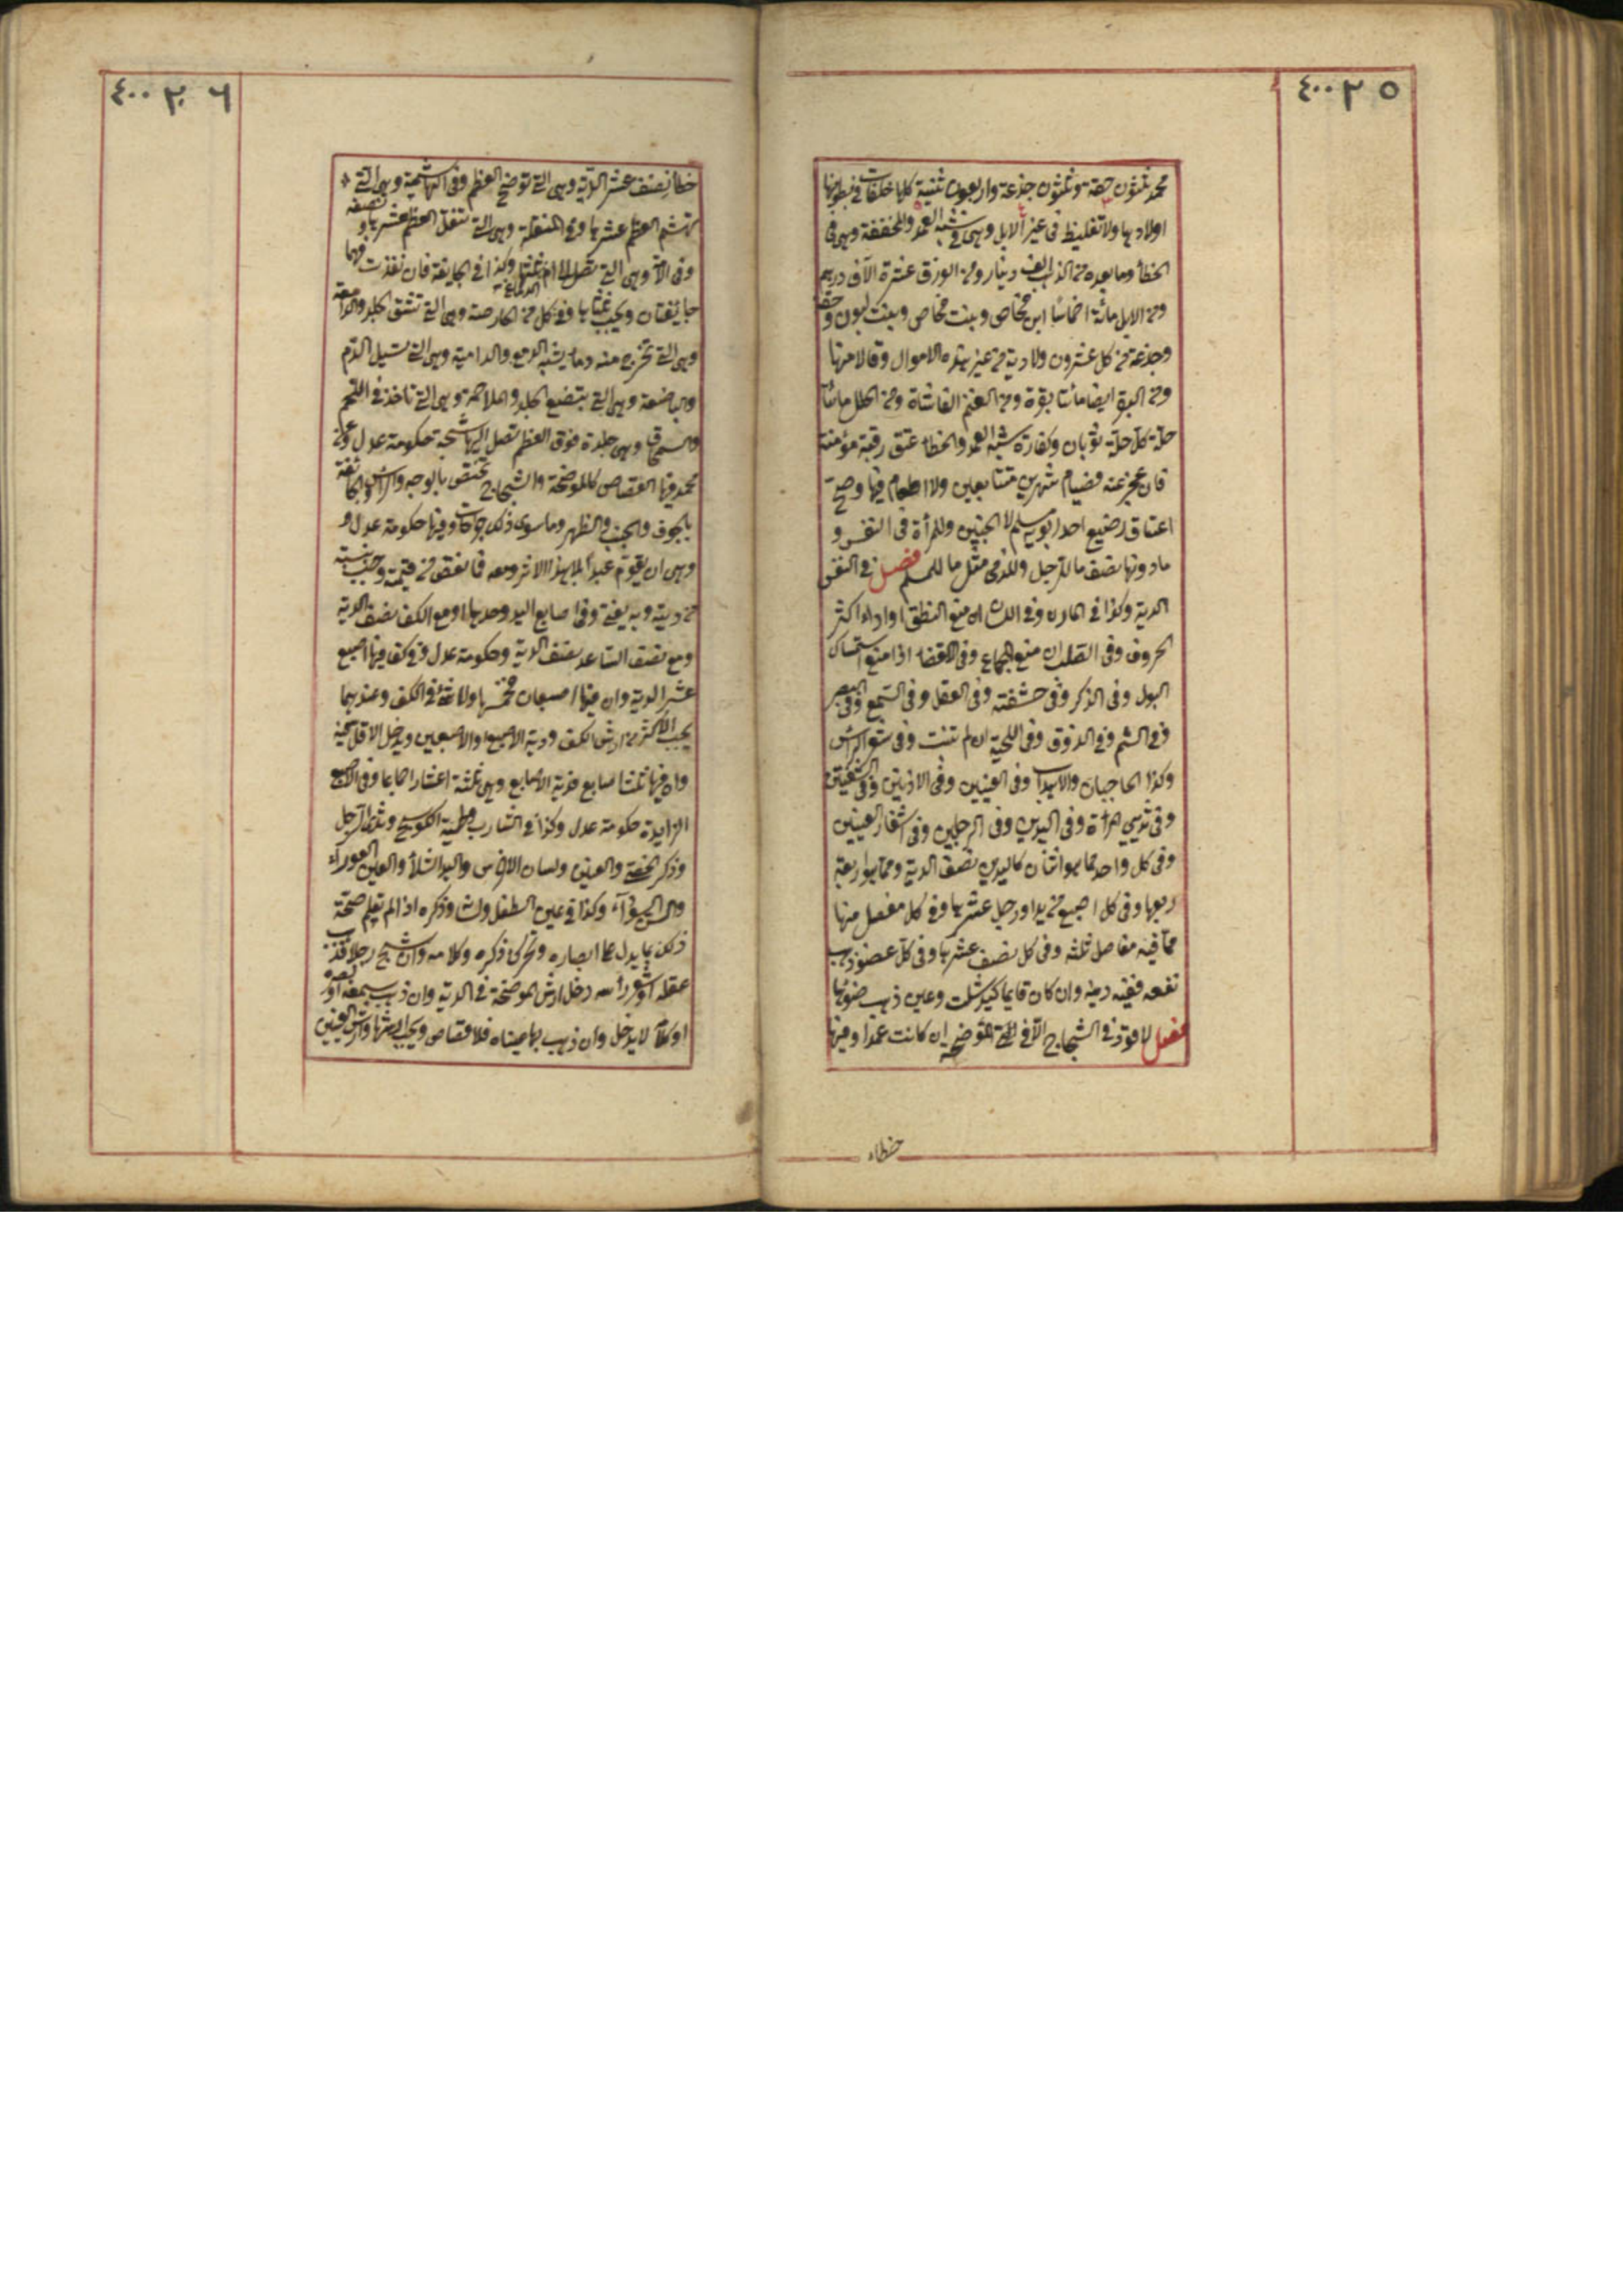 ٤٠٠٢٥
محمد ثلثون حقة وثلثون جذعة واربعون ثنية كلها خلفات في بطونها
اولادها ولا تغليظ في غير الابل وهى في شبه العمد والمخففة وهى في
الخطأ وما بعده من الذهب الف دينار ومن الورق عشرة الآف درهم
ومن الابل مائة اخماسًا ابن مخاض وبنت مخاض وبنت لبون وحقة
وجذعة من كل عشرون ولا دية من غير هذه الاموال وقالا منها
ومن البقر ايضا مأتا بقرة ومن الغنم الفا شاة ومن الحلل مائتا
حلة كل حلة ثوبان وكفارة شبه العمد والخطاء عتق رقبة مؤمنة
فان عجز عنه فصيام شهرين متتابعين ولا اطعام فيها وصح
اعتاق رضيع احد ابويه مسلم لا الجنين وللمرأة في النفس و
ما دونها نصف ما للرجل وللذمى مثل ما للمسلم فصل في النفس
الدية وكذا في المارن وفي اللسان ان منع النطق او اداء اكثر
الحروف وفي الصلب ان منع الجماع وفي الافضاء اذا منع استمساك
البول وفي الذكر وفي حشفته وفي العقل وفي السمع وفي البصر
وفي الشم وفي الذوق وفي اللحية ان لم تنبت وفي شعر الرأس
وكذا الحاجبان والاهداب وفي العينين وفي الاذنين وفي الشفتين
وفي ثديي امرأة وفي اليدين وفي الرجلين وفي اشفار العينين
وفي كل واحد مما هو اثنان كاليدين نصف الدية ومما هو اربعة
ربعها وفي كل اصبع من يد او رجل عشرها وفي كل مفصل منها
مما فيه مفاصل ثلثه وفي كل نصف عشرها وفي كل عضو ذهب
نفعه ففيه دية وان كان قايما كيد شلت وعين ذهب ضوئها
فصل لا قود في الشجاج الا في الموضحة ان كانت عمدا وفيها
خطاء
٤٠٠٢٦
خطأ نصف عشر الدية وهى التي توضح العظم وفي الهاشمة وهى التي
تهشم العظم عشرها وفي المنقلة وهى التي تنقل العظم عشرها و نصفه
وفي الآمة وهى التي تصل الى ام الدماغ ثلثها وكذا في الجايفة فان نفذت فهما
جايفتان ويجب ثلثاها وفي كل من الحارصة وهى التي تشق الجلد والدامعة
وهى التي تخرج منه وما يشبه الدمع والدامية وهى التي تسيل الدم
والباضعة وهى التي تبضع الجلد والملاحمة وهى التي تاخذ في اللحم
والسمحاق وهى جلدة فوق العظم تصل اليها الشجة حكومة عدل وعن
محمد فيها القصاص كالموضحة والشجاج تختص بالوجه والرأس والجائفة
بالجوف والجنب والظهر وما سوى ذلك جراحات وفيها حكومة عدل و
وهى ان يقوم عبدا بلا هذا الاثر ومعه فما نقص من قيمته وجب بنسبته
من ديته وبه يفتى وفي اصابع اليد وحدها او مع الكف نصف الدية
ومع نصف الساعد نصف الدية وحكومة عدل وفي كف وفيها اصبع
عشر الدية وان فيها اصبعان فخمسها ولا شئ في الكف وعندهما
يجب الاكثر من ارش الكف ودية الاصبع والاصبعين ويدخل الاقل فيه
وان فيها ثلث اصابع فدية الاصابع وهى ثلثة اعشار اجماعا وفي الاصبع
الزايدة حكومة عدل وكذا في الشارب ولحية الكوسج وثدي الرجل
وذكر الخصي والعنين ولسان الاخرس واليد الشلأ والعين العوراء
والسن السودآء وكذا في عين الطفل ولسانه وذكره اذا لم يعلم صحة
ذلك بما يدل على ابصاره وتحرك ذكره وكلامه وان شج رجلا فذهب
عقله او شعر رأسه دخل ارش الموضحة في الدية وان ذهب سمعه او بصره
او كلامه لا يدخل وان ذهب بها عيناه فلا قصاص ويجب ارشها وارش العينين